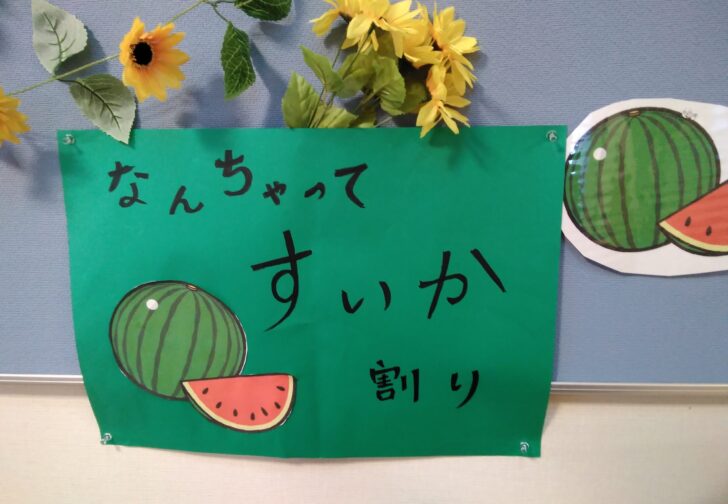 なんちゃって
すいか
割り